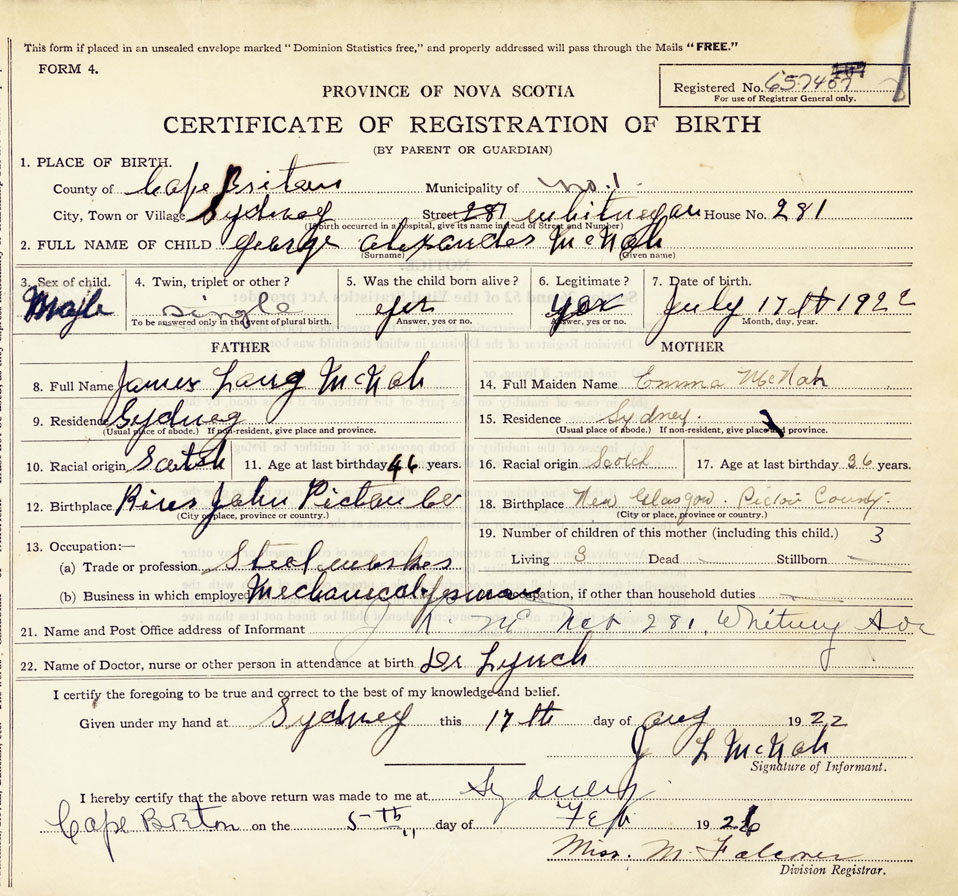 This form if placed in an unsealed envelope marked "Dominion Statistics free," and properly addressed will pass through the Mails "FREE."
FORM 4.
Registered No. 657407
For use of Registrar General only.
PROVINCE OF NOVA SCOTIA
CERTIFICATE OF REGISTRATION OF BIRTH
(BY PARENT OR GUARDIAN)
1. PLACE OF BIRTH.
County of Cape Briton Municipality of No. 1.
City, Town or Village Sydney Street 281 whitney av House No. 281
(If birth occurred in a hospital, give its name instead of Street and Number)
2. FULL NAME OF CHILD george alexander McNab
(Surname) (Given name)
3. Sex of child. 4. Twin, triplet or other? 5. Was the child born alive? 6. Legitimate? 7. Date of birth.
Male single yes yes July 17th 1922
To be answered only in the event of plural birth. Answer, yes or no. Answer, yes or no. Month, day, year.
FATHER MOTHER
8. Full Name James Lang McNab 14. Full Maiden Name Emma McNab
9. Residence Sydney 15. Residence Sydney.
(Usual place of abode.) If non-resident, give place and province. (Usual place of abode.) If non-resident, give place and province.
10. Racial origin Scotch 11. Age at last birthday 46 years. 16. Racial origin Scotch 17. Age at last birthday 36 years.
12. Birthplace River John Pictou Co 18. Birthplace New Glasgow. Pictou County.
(City or place, province or country.) (City or place, province or country.)
13. Occupation:— 19. Number of children of this mother (including this child.) 3
(a) Trade or profession Steel worker Living 3 Dead Stillborn
(b) Business in which employed Mechanical occupation, if other than household duties
21. Name and Post Office address of Informant J L McNab 281, Whitney Ave
22. Name of Doctor, nurse or other person in attendance at birth Dr Lynch
I certify the foregoing to be true and correct to the best of my knowledge and belief.
Given under my hand at Sydney this 17th day of aug 1922
J L McNab
Signature of Informant.
I hereby certify that the above return was made to me at Sydney
Cape Breton on the 5th day of Feb 1926
Miss. M. Falconer
Division Registrar.